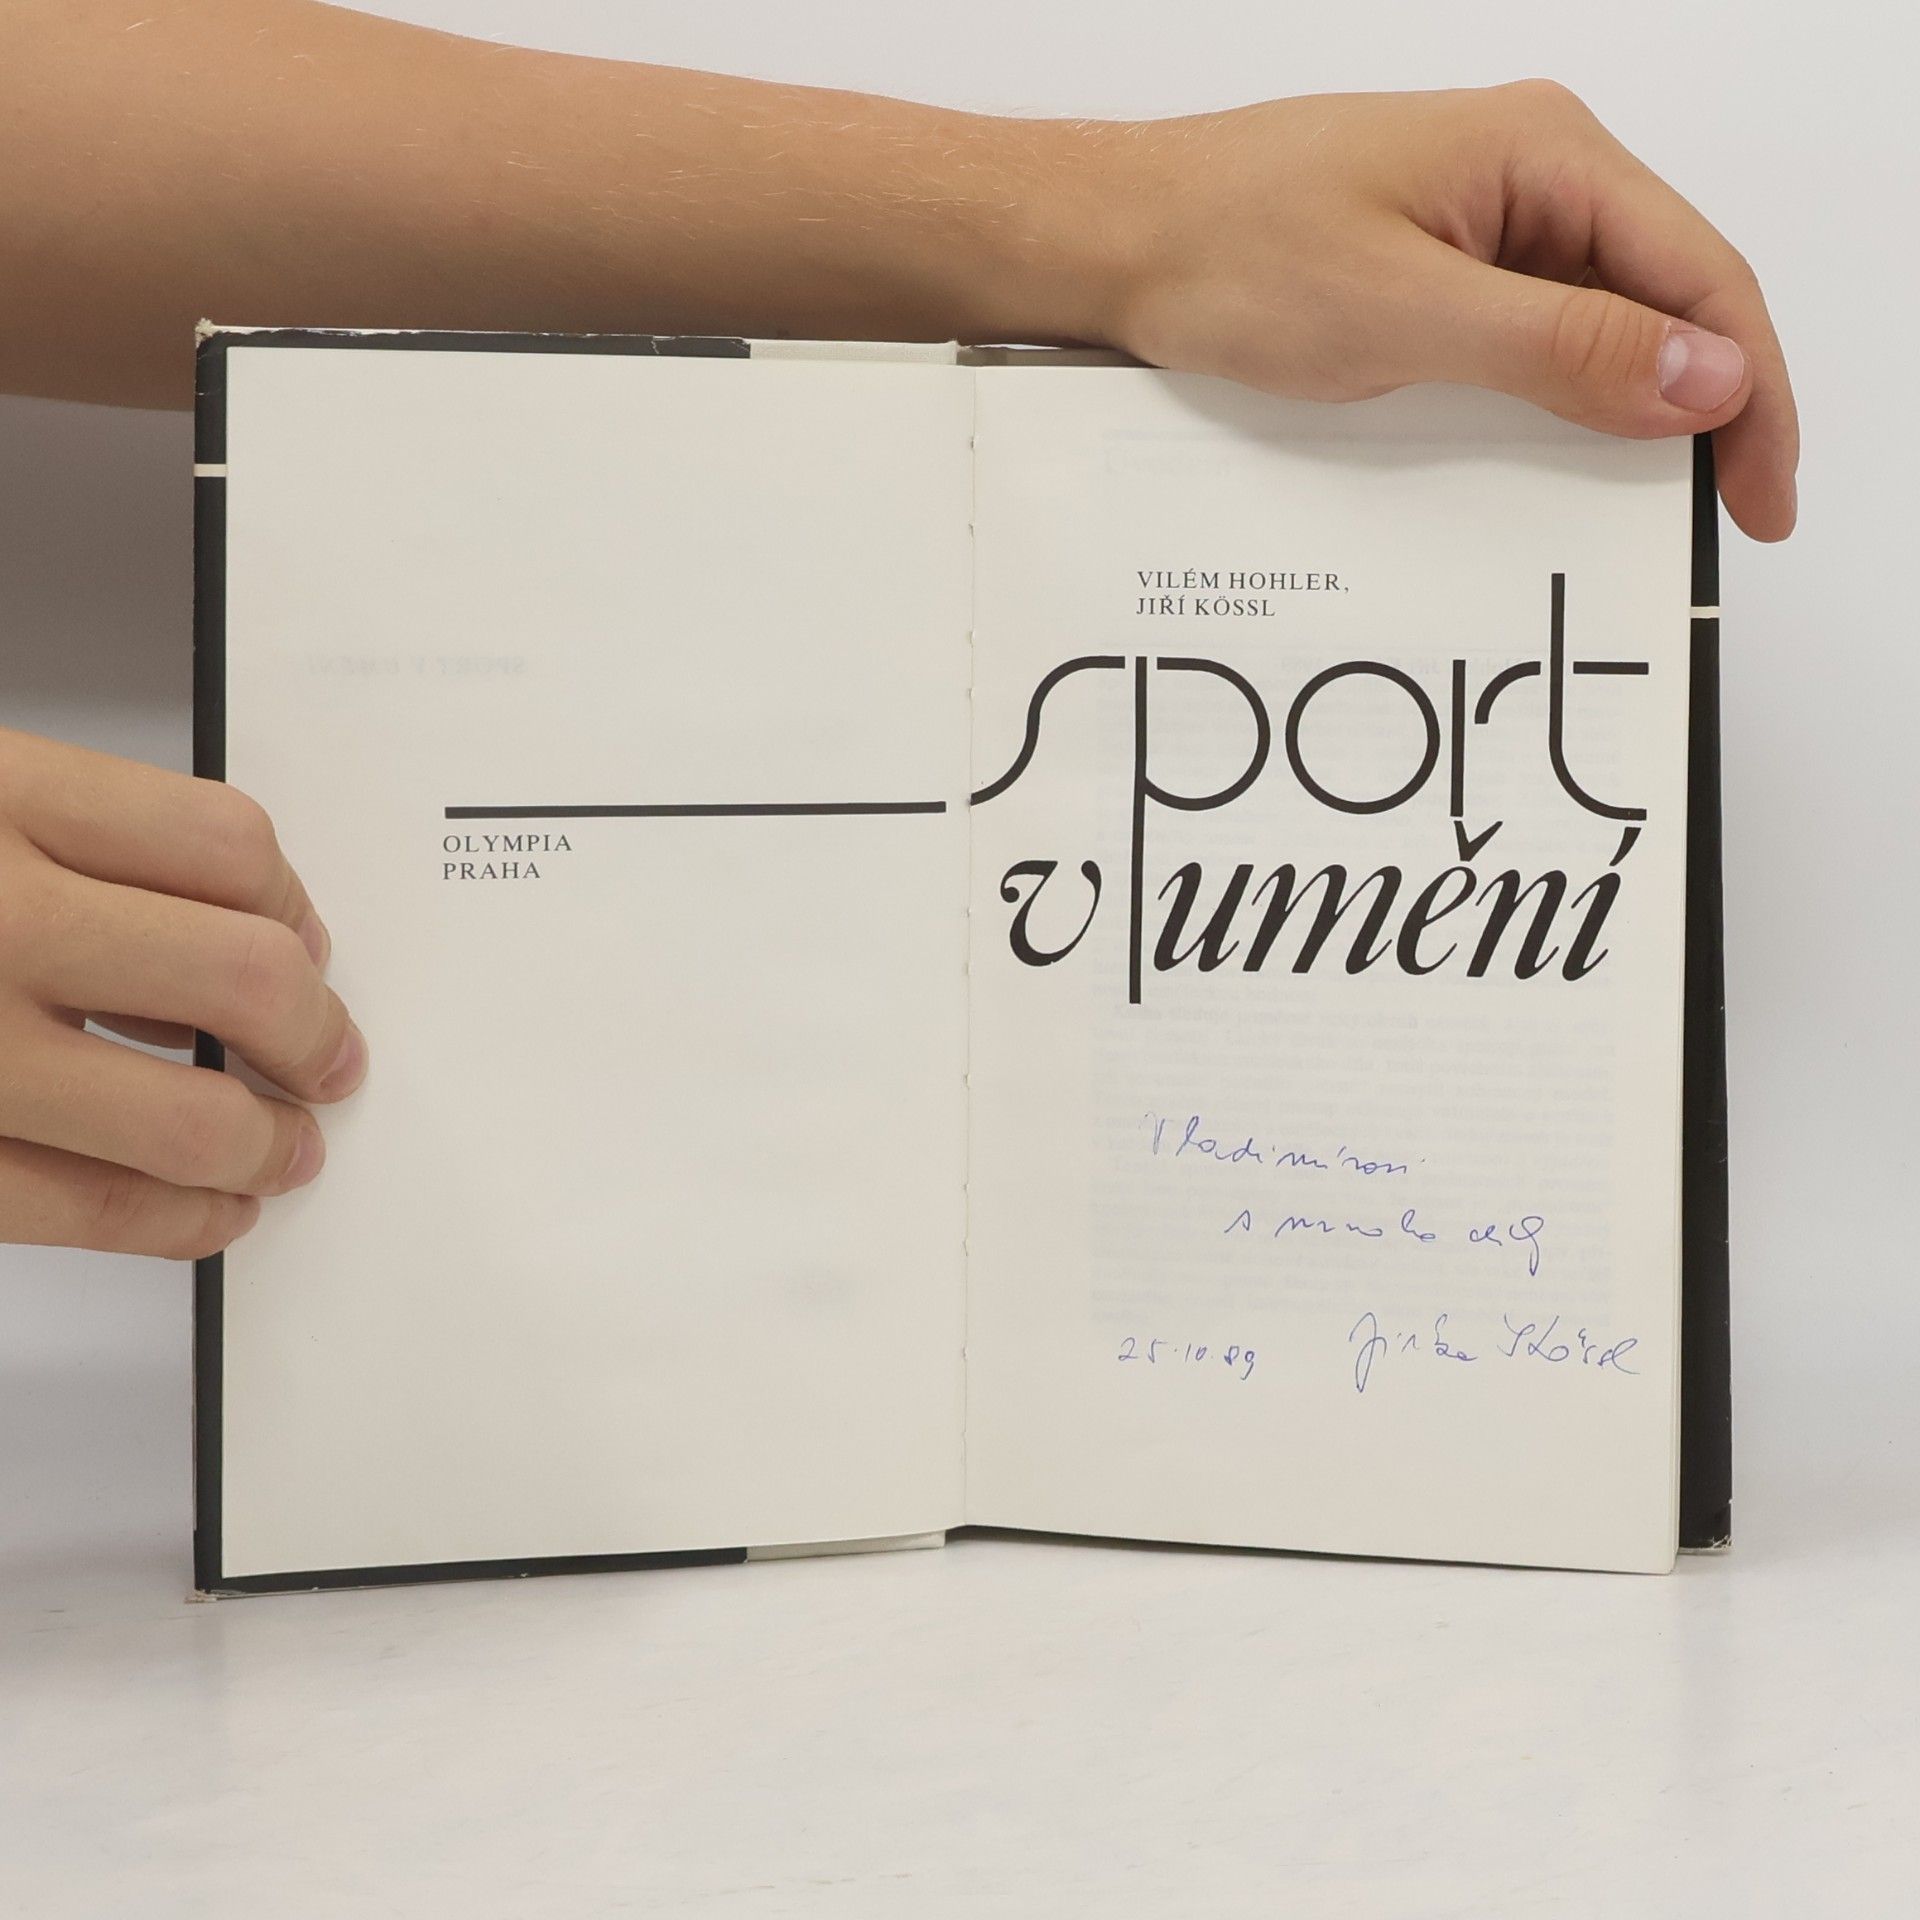 OLYMPIA
PRAHA
VILÉM HOHLER,
JIŘÍ KÖSSL
sport
v umění
Vladimírovi
s mnoha díky
25.10.89 Jirka Kössl